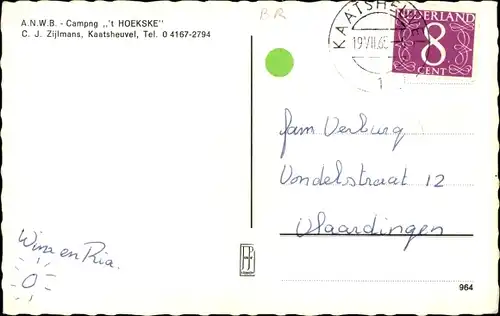 A.N.W.B. - Campng „'t HOEKSKE"
C. J. Zijlmans, Kaatsheuvel, Tel. 0 4167-2794
B R
KAATSHEUVEL
19 VII.65
1
NEDERLAND
8
CENT
fam Verburg
Vondelstraat 12
Vlaardingen
Wim en Ria.
964